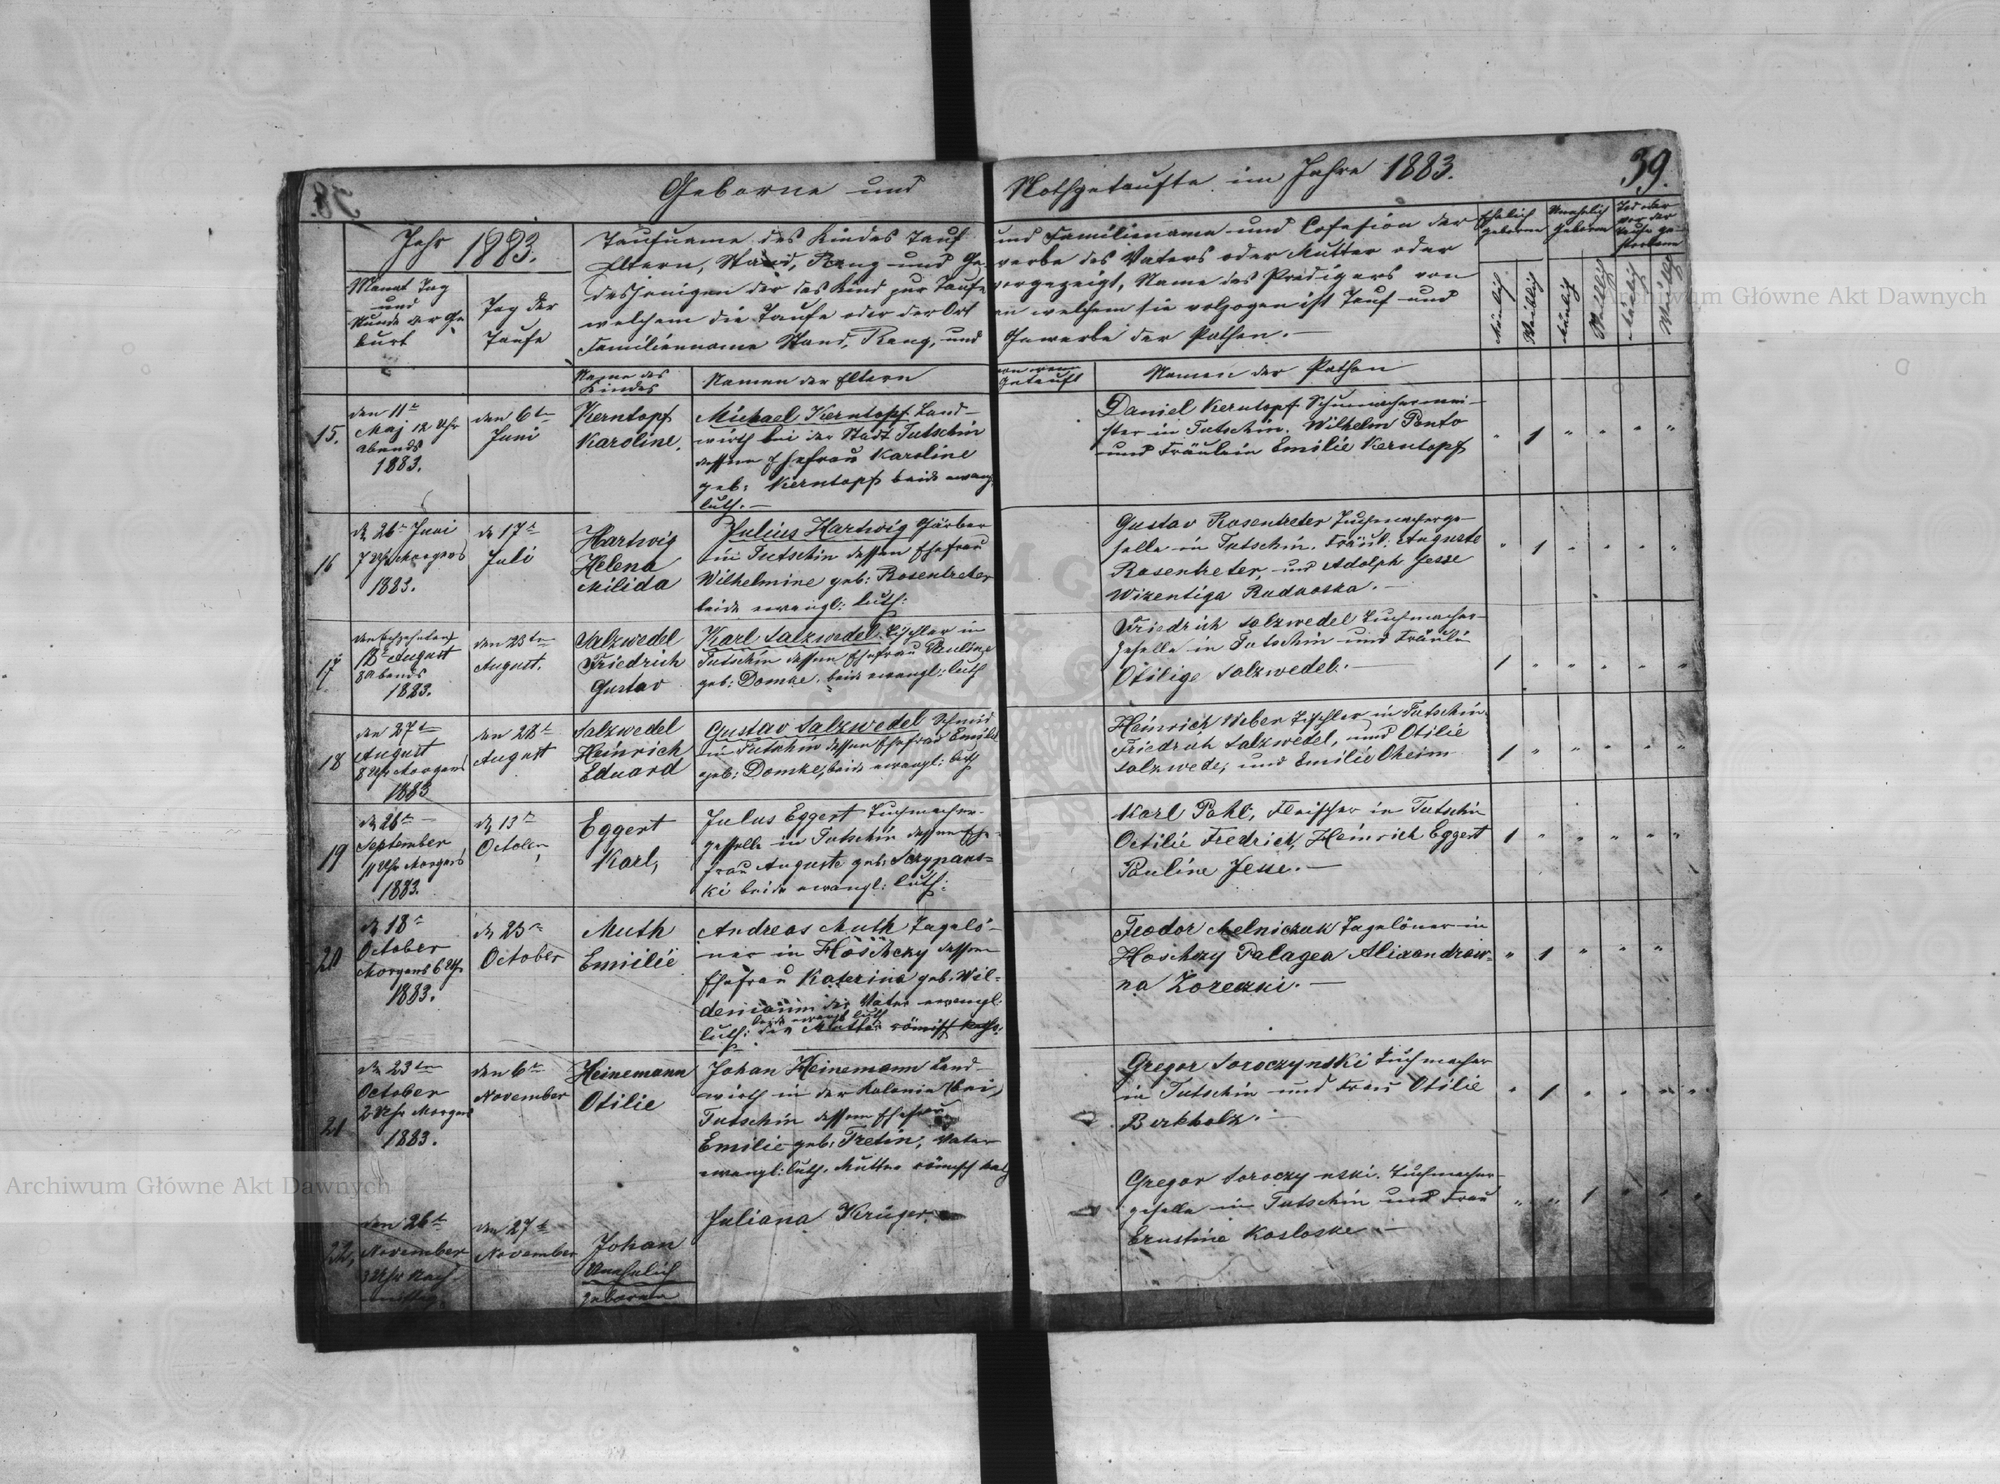 38.
Geborne und Nothgetaufte im Jahre 1883.
39.
Jahr 1883.
Monat Tag
und
Stunde der Ge
burt
Tag der
Taufe
Taufname des Kindes Tauf und Familienname und Cofesion der
Eltern, Stand, Rang und Gewerbe des Vaters oder Mutter oder
desjenigen der das Kind zur Taufe vorgezeigt, Name des Predigers von
welchem die Taufe oder der Ort an welchem sie volzogen ist Tauf und
Familienname Stand, Rang, und Gewerbe der Pathen.
Ehelich
geborene
Unehelich
geborene
Tod oder
vor der
Taufe ge-
storbene
Mänlich
Weiblich
Mänlich
Weiblich
Mänlich
Weiblich
Name des
Kindes
Namen der Eltern
von wem
getauft
Namen der Pathen
15.
den 11t
Maj 12 Uhr
Abends
1883.
den 6ten
Juni
Kerntopf
Karoline.
Michael Kerntopf Land-
wirth bei der Stadt Tutschin
dessen Ehefrau Karoline
geb: Kerntopf beide ewang
luth.
Daniel Kerntopf Schumachermei-
ster in Tutschin. Wilhelm Ponto
und Fräulein Emilie Kerntopf
" 1 " " " "
16
d 26t Juni
7 Uhr Morgens
1883.
d 17t
Juli
Hartwig
Helena
Milida
Julius Hartwig Gärber
in Tutschin dessen Ehefrau
Wilhelmine geb: Rosentreter
beide ewangl: luth:
Gustav Rosentreter Tuchmacherge-
selle in Tutschin. Fräul: Auguste
Rosentreter, und Adolph Jesse
Wizentiga Rudnoska.
" 1 " " " "
17
den
18t August
8 Abends
1883.
den 28ten
August.
Salzwedel
Friedrich
Gustav
Karl Salzwedel Tischler in
Tutschin dessen Ehefrau Pauline
geb: Domke, beide ewangl: luth
Friedrich Salzwedel Tuchmacher-
geselle in Tutschin und Fräulin
Otilige Salzwedel.
1 " " " " "
18
den 27ten
August
8 Uhr Morgens
1883
den 28t
August
Salzwedel
Heinrich
Eduard
Gustav Salzwedel Schmid
in Tutschin dessen Ehefrau Emilie
geb: Domke, beide ewangl: luth
Heinrich Weber Tischler in Tutschin
Friedrich Salzwedel, und Otilie
Salzwede; und Emilie Oheim
1 " " " " "
19
d 26t
September
11 Uhr Morgens
1883.
d 13t
October
Eggert
Karl,
Julus Eggert Tuchmacher-
gesselle in Tutschin dessen Ehe-
frau Auguste geb: Sczypans-
ki beide ewangl: luth:
Karl Pohl, Fleischer in Tutschin
Octilie Fredrich, Heinrich Eggert
Pauline Jesse.
1 " " " " "
20
d 18t
October
Morgens 6 Uhr
1883.
d 23ten
October
Muth
Emilie
Andreas Muth Tagelö-
ner in Höschczy dessen
Ehefrau Katerina geb: Wil-
der Vater ewangl:
beide ewangl luth
luth: die Mutter römisch kath:
Feodor Melniczuk Tagelöner in
Hoschczy Palagea Alixandrow-
na Zoreczki.
" 1 " " "
21
d 23ten
October
2 Uhr Morgens
1883.
den 6ten
November
Heinemann
Otilie
Johan Heinemann Land-
wirth in der Kolonie (bei)
Tutschin dessen Ehefrau
Emilie geb: Tretin, Vater
ewangl: luth. Mutter römisch kath
Gregor Soroczynski Tuchmacher
in Tutschin und Frau Otilie
Berkholz.
" 1 " " " "
22,
den 26t
November
3 Uhr Nach-
mittag.
den 27t
November
Johan
Unehelich
geboren
Juliana Krüger.
Gregor Soroczynski. Tuchmacher-
geselle in Tutschin und Frau
Ernstine Kosloske
" " 1 " " "
Archiwum Główne Akt Dawnych
Archiwum Główne Akt Dawnych